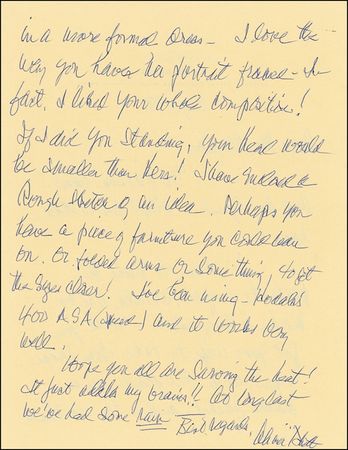 in a more formal dress — I love the
way you have her portrait framed — In
fact, I liked your whole composition!
If I did you standing, your head would
be smaller than hers! I have enclosed a
rough sketch of my idea. Perhaps you
have a piece of furniture you could lean
on. Or folded arms or something, to get
the sizes closer! I've been using — Kodak's
400 ASA (speed) and it works very
well.
Hope you all are surviving the heat!
It just addles my brain!! At long last
we've had some rain — Best regards,